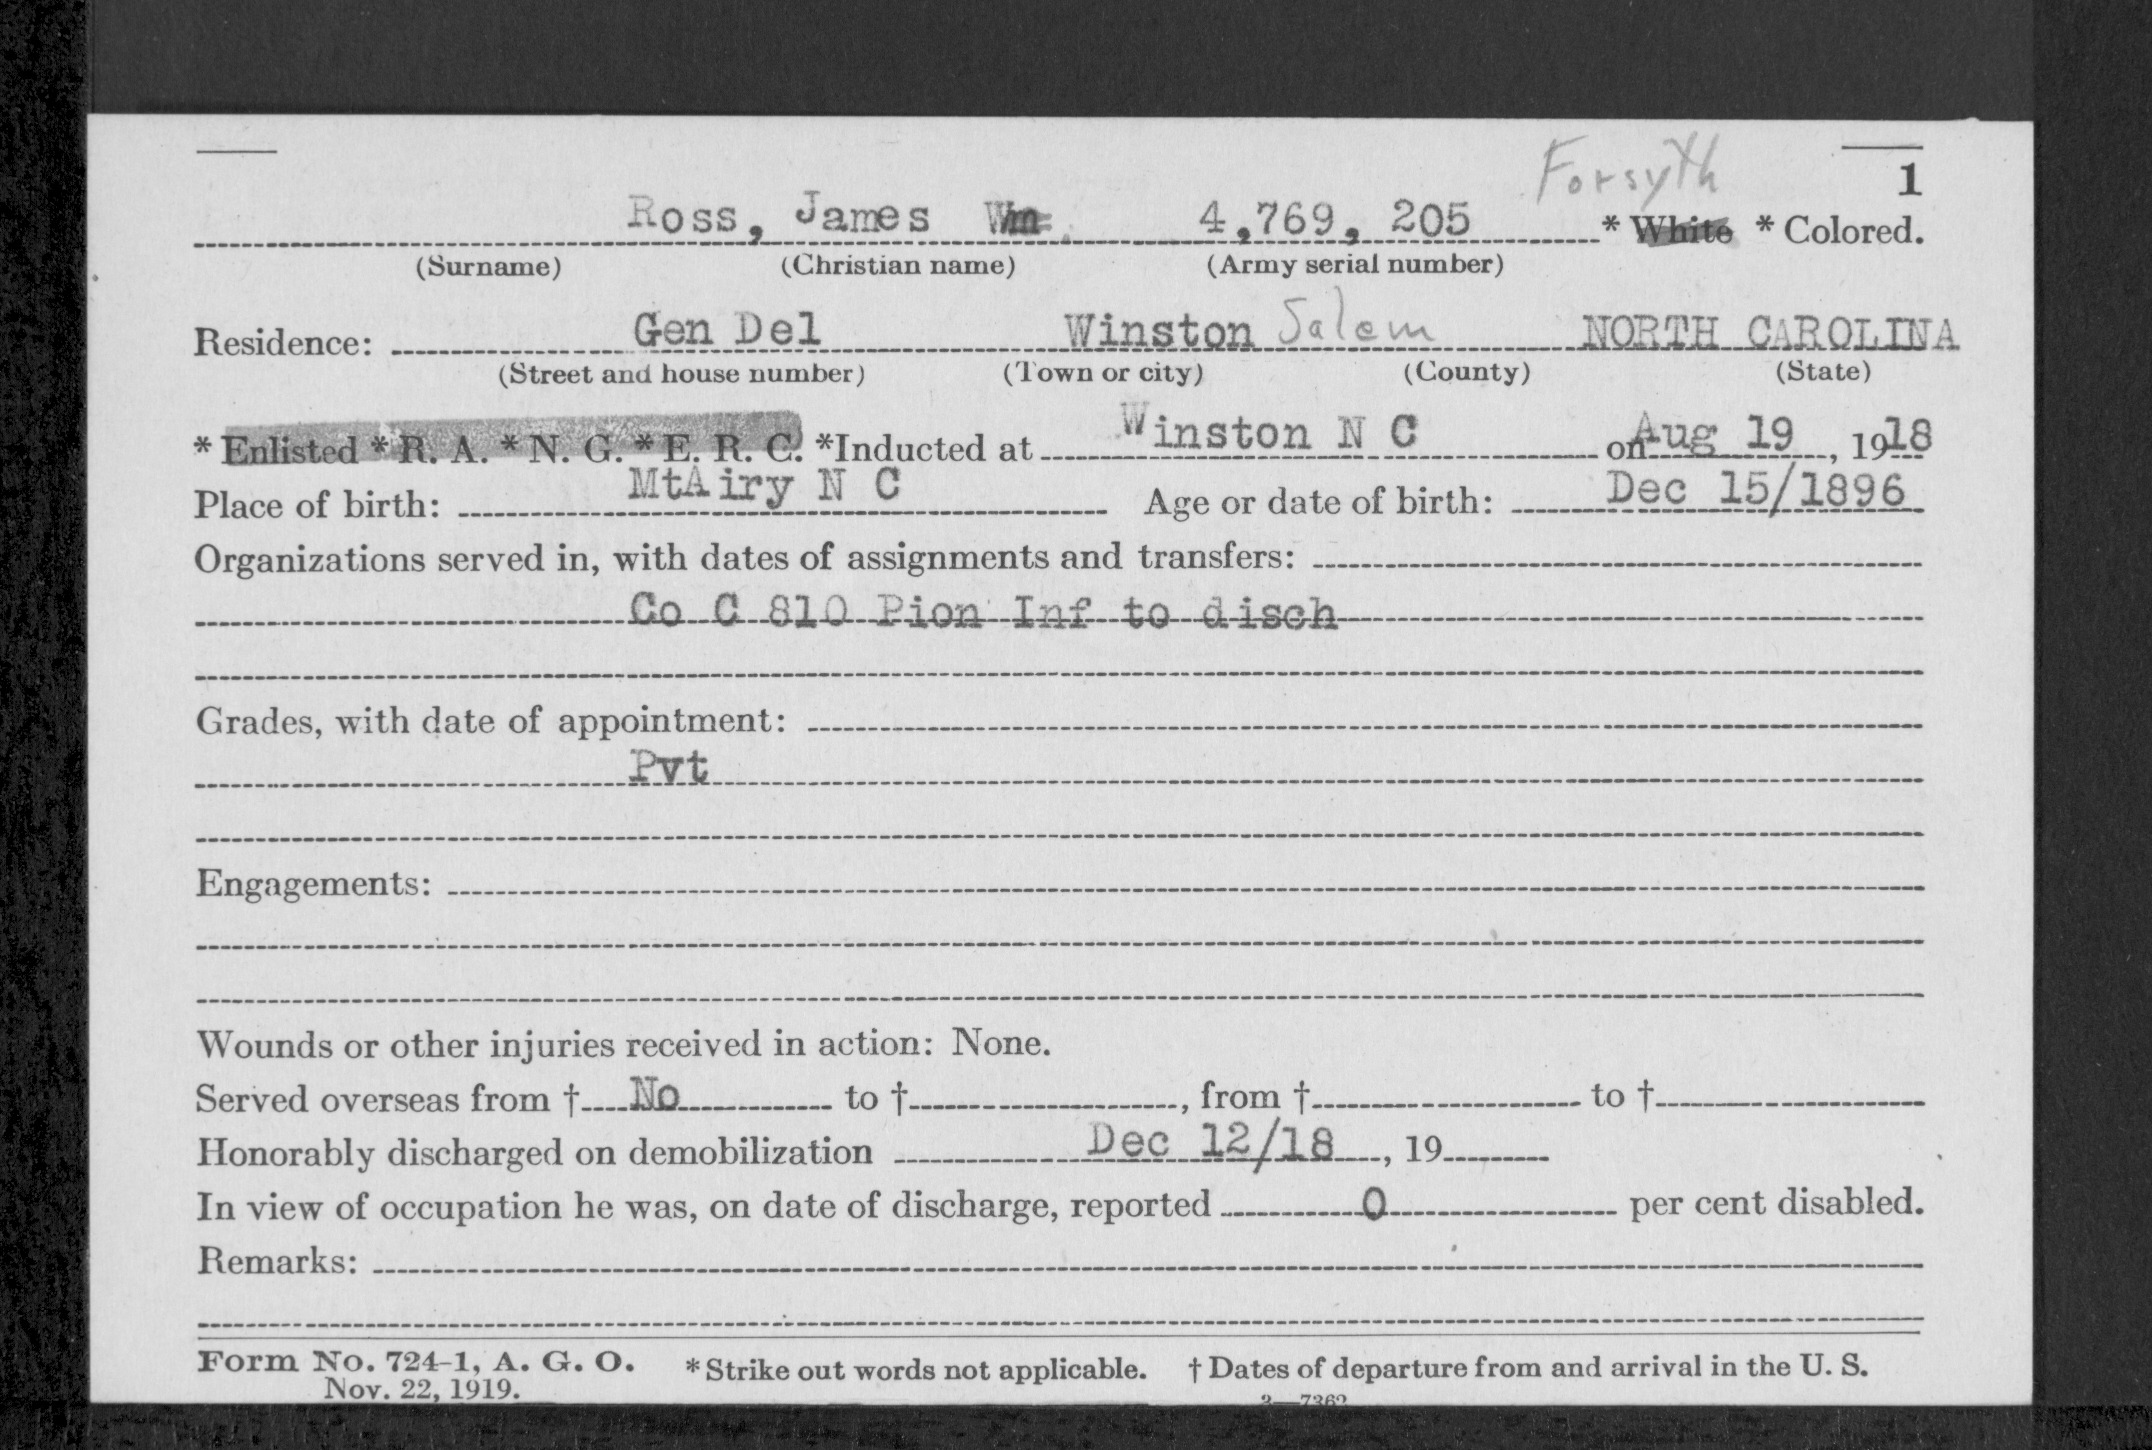 Forsyth
1
Ross, James Wm 4,769, 205 * White * Colored.
(Surname) (Christian name) (Army serial number)
Residence: Gen Del Winston Salem NORTH CAROLINA
(Street and house number) (Town or city) (County) (State)
* Enlisted * R. A. * N. G. * E. R. C. *Inducted at Winston N C on Aug 19, 1918
Place of birth: MtAiry N C Age or date of birth: Dec 15/1896
Organizations served in, with dates of assignments and transfers:
Co C 810 Pion Inf to disch
Grades, with date of appointment:
Pvt
Engagements:
Wounds or other injuries received in action: None.
Served overseas from † No to †, from † to †
Honorably discharged on demobilization Dec 12/18, 19
In view of occupation he was, on date of discharge, reported 0 per cent disabled.
Remarks:
Form No. 724-1, A. G. O. * Strike out words not applicable. † Dates of departure from and arrival in the U. S.
Nov. 22, 1919. 3—7362